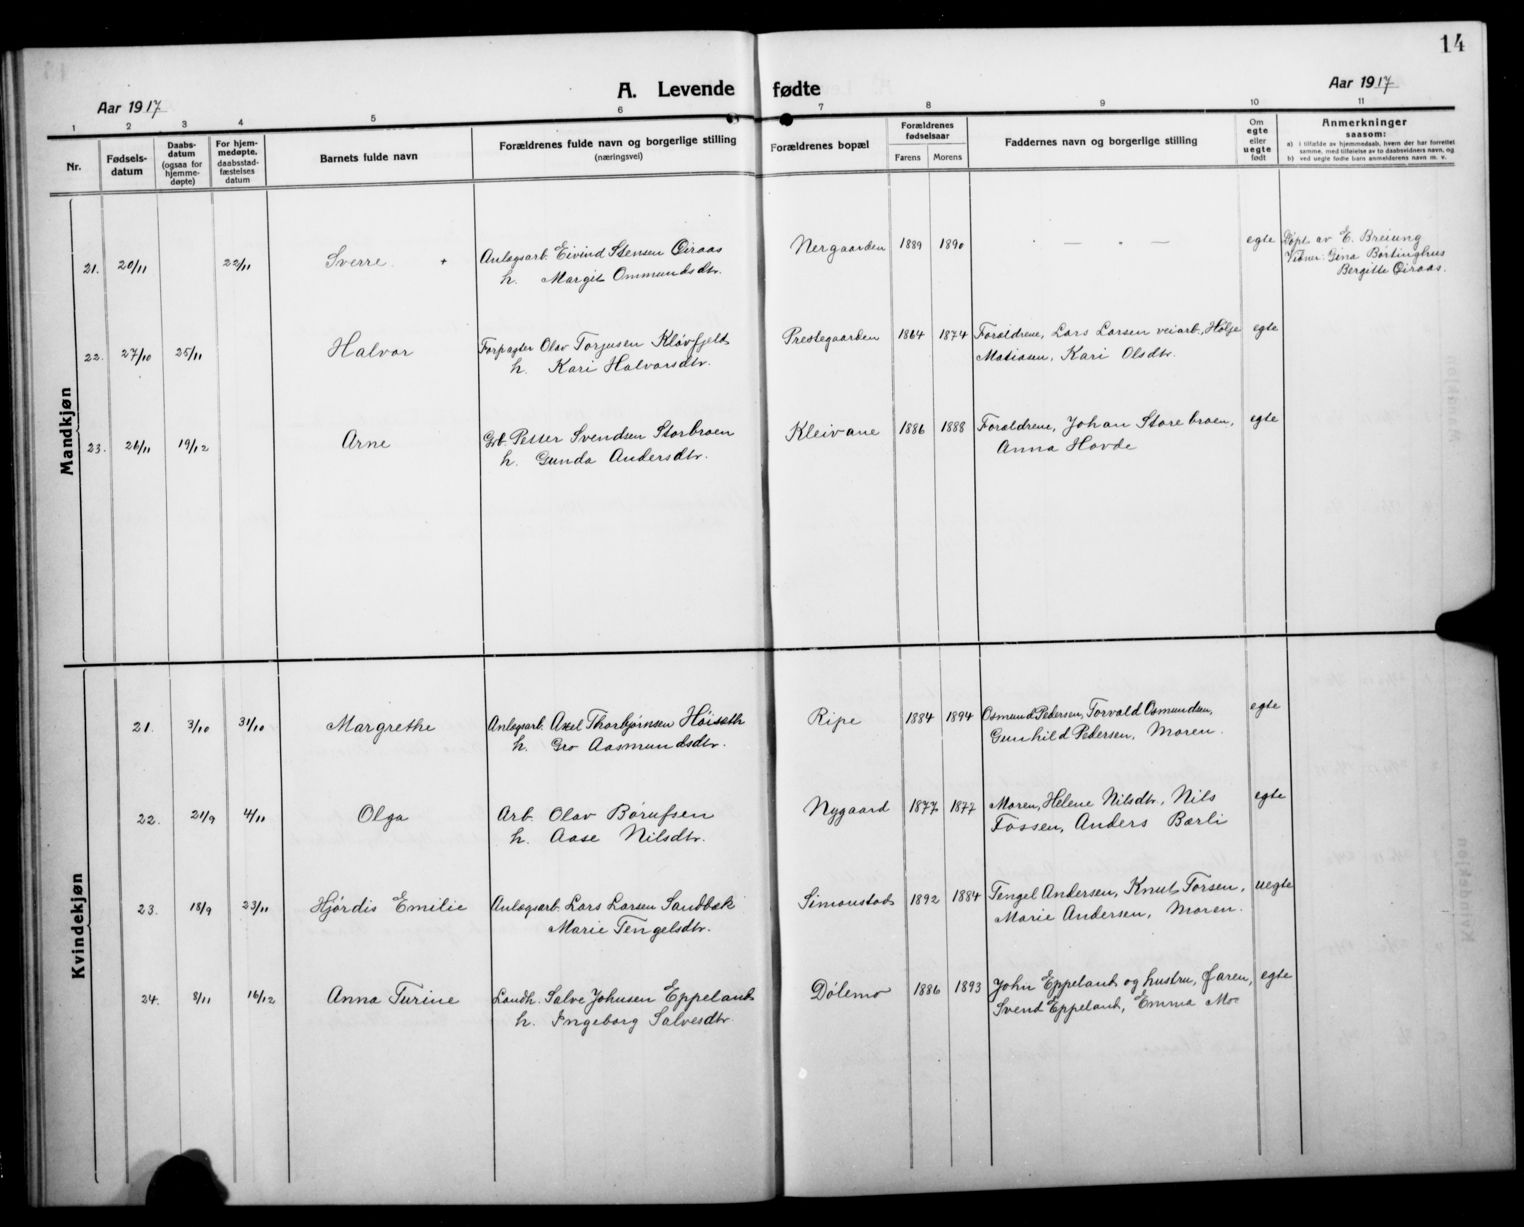 14
Aar 1917
A. Levende fødte
Aar 1917
1 2 3 4 5 6 7 8 9 10 11
Nr.
Fødsels-
datum
Daabs-
datum
(ogsaa for
hjemme-
døpte)
For hjem-
medøpte,
daabsstad-
fæstelses
datum
Barnets fulde navn
Forældrenes fulde navn og borgerlige stilling
(næringsvei)
Forældrenes bopæl
Forældrenes
fødselsaar
Farens Morens
Faddernes navn og borgerlige stilling
Om
egte
eller
uegte
født
Anmerkninger
saasom:
a) i tilfælde av hjemmedaab, hvem der har forrettet
samme, med tilføielse av to daabsvidners navn, og
b) ved uegte fødte barn anmelderens navn m. v.
Mandkjøn
21. 20/11 22/11 Sverre + Anlægsarb. Eivind Stensen Øiraas Nergaarden 1889 1890 — . — egte Døpt av E. Breiung
h. Margit Ommundsdtr. Vidner: Gina Børtinghus
Bergitte Øiraas.
22. 27/10 25/11 Halvor Forpagter Olav Torjusen Kløvfjeld Prestegaarden 1864 1874 Forældrene, Lars Larsen veiarb., Hølje egte
h. Kari Halvorsdtr. Matiasen, Kari Olsdtr.
23. 26/11 19/12 Arne Grb. Petter Svendsen Storbroen Kleivane 1886 1888 Forældrene, Johan Storebroen, egte
h. Gunda Andersdtr. Anna Hovde
Kvindekjøn
21. 3/10 31/10 Margrethe Anlægsarb. Axel Thorbjørnsen Høiseth Ripe 1884 1894 Osmund Pedersen, Torvald Osmundsen, egte
h. Gro Aasmundsdtr. Gunhild Pedersen, Moren.
22. 21/9 4/11 Olga Arb. Olav Børufsen Nygaard 1877 1877 Moren, Helene Nilsdtr., Nils egte
h. Aase Nilsdtr. Fossen, Anders Bærli
23. 18/9 23/11 Hjørdis Emilie Anlægsarb. Lars Larsen Sandbæk Simonstad 1892 1884 Tengel Andersen, Knut Torsen, uegte
Marie Tengelsdtr. Marie Andersen, Moren.
24. 8/11 16/12 Anna Turine Landh. Salve Johnsen Eppeland Dølemo 1886 1893 John Eppeland og hustru, Faren, egte
h. Ingeborg Salvesdtr. Svend Eppeland, Emma Moe